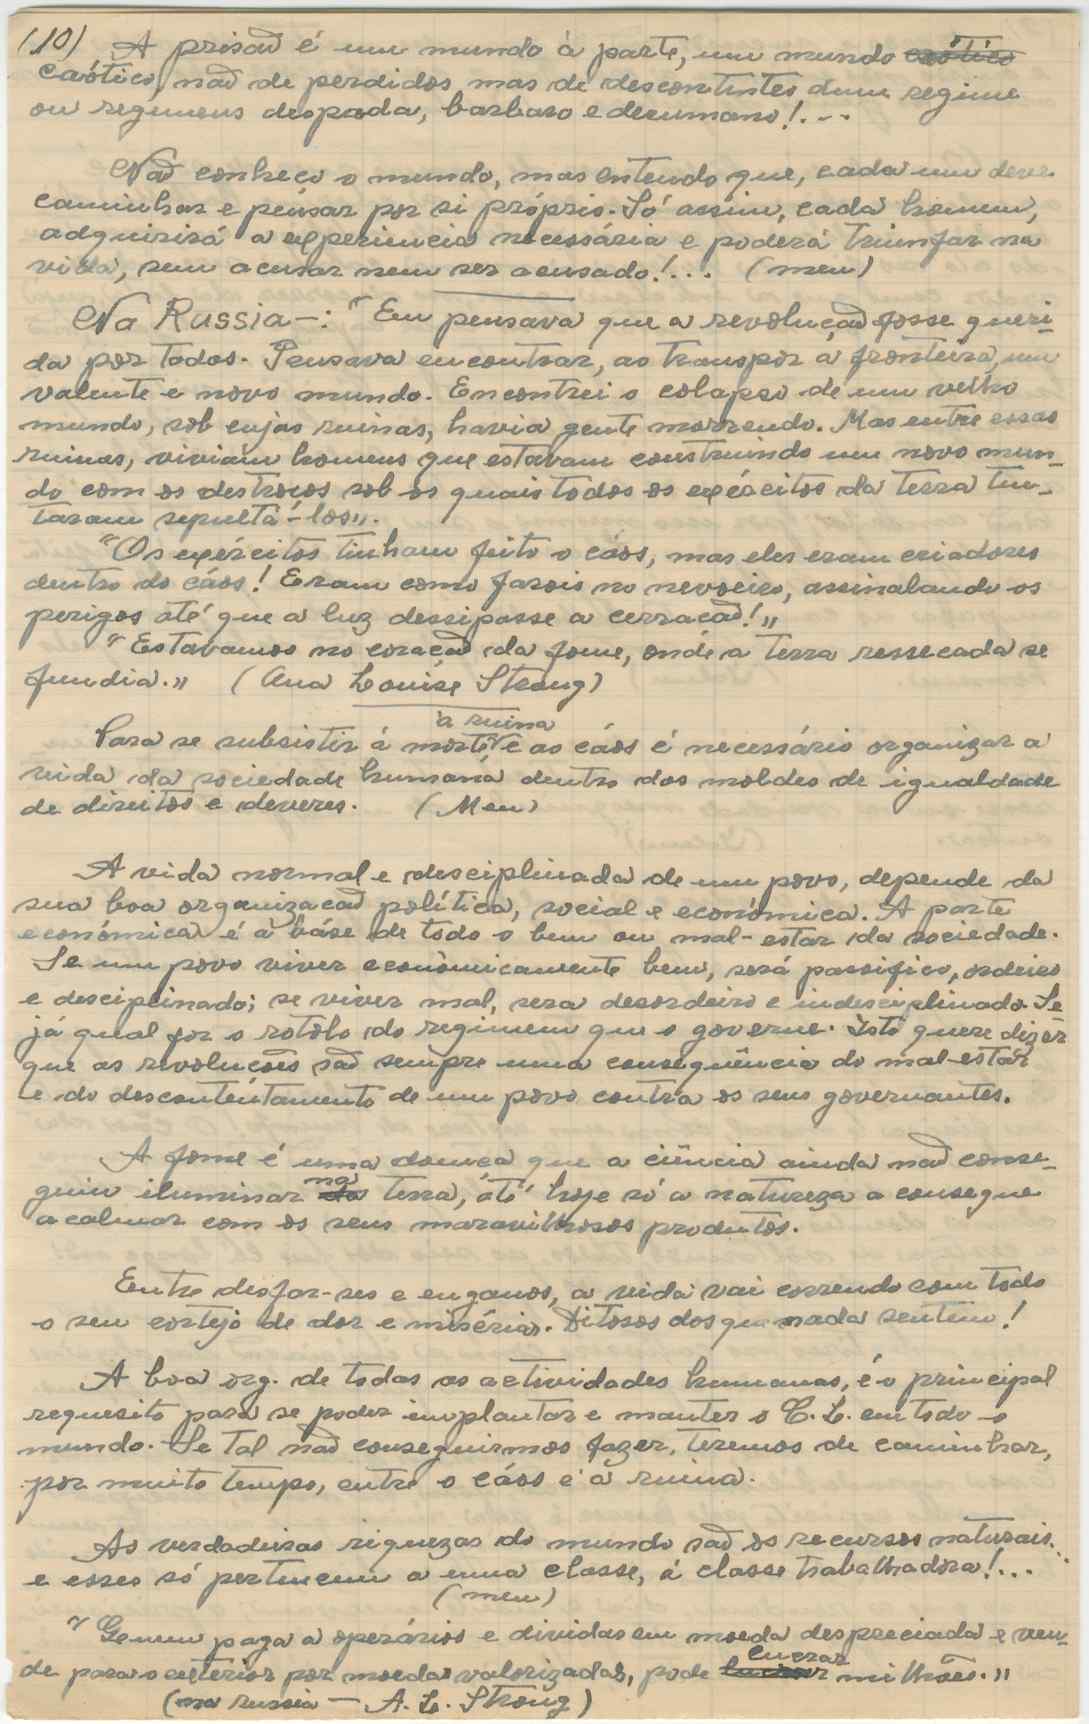 (10) A prisaõ é um mundo á parte, um mundo exótico
caótico, naõ de perdidos mas de descontentes dum regime
ou regimens despada, barbaro e desumano!...
Naõ conheço o mundo, mas entendo que, cada um deve
caminhar e pensar por si próprio. Só assim, cada homem,
adquirirá a experiencia necessária e poderá triunfar na
vida, sem acusar nem ser acusado!... (meu)
Na Russia-: "Eu pensava que a revoluçaõ fosse queri-
da por todos. Pensava encontrar, ao transpor a fronteira, um
valente e novo mundo. Encontrei o colapso de um velho
mundo, sob cujas ruinas, havia gente morrendo. Mas entre essas
ruinas, viviam homens que estavam construindo um novo mun-
do com os destroços sob os quais todos os exércitos da terra ten-
taram sepultá-los".
"Os exércitos tinham feito o cáos, mas eles eram criadores
dentro do cáos! Eram como farois no nevoeiro, assinalando os
perigos até que a luz dessipasse a cerraçaõ!"
"Estavamos no coraçaõ da fome, onde a terra ressecada se
fundia." (Ana Louise Strong)
á ruina
Para se subsistir á morte e ao cáos é necessário organizar a
vida da sociedade humana dentro dos moldes de igualdade
de direitos e deveres. (Meu)
A vida normal e desciplinada de um povo, depende da
sua boa organizacaõ política, social e económica. A parte
económica é a báse de todo o bem ou mal-estar da sociedade.
Se um povo viver econòmicamente bem, será passifico, ordeiro
e desciplinado; se viver mal, sera desordeiro e indesciplinado. Se
já qual for o rotolo do regimem que o governe. Isto quere dizer
que as revoluções saõ sempre uma consequência do mal-estar
e do descontentamento de um povo contra os seus governantes.
A fome é uma doença que a ciência ainda naõ conse-
guiu iluminar na terra, até hoje só a natureza a consegue
acalmar com os seus maravilhosos produtos.
Entre desfar-ses e enganos, a vida vai correndo com todo
o seu cortejo de dor e miséria. Ditosos dos que nada sentem!
A boa org. de todas as actividades humanas, é o principal
requesito para se poder implantar e manter o C. L. em todo o
mundo. Se tal naõ conseguirmos fazer, teremos de caminhar,
por muito tempo, entre o cáos e a ruina.
As verdadeiras riquezas do mundo saõ os recursos naturais...
e esses só pertencem a uma classe, á classe trabalhadora!...
(meu)
"Quem paga a operários e dividas em moeda despreciada e ven-
de para o exterior por moedas valorizadas, pode lucrar milhões."
(na russia - A. L. Strong)